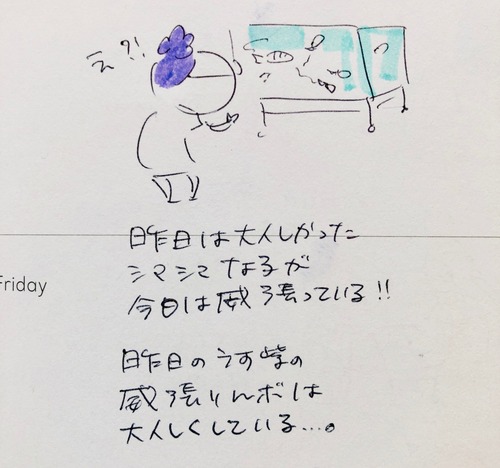 え?!
昨日は大人しかった
シマシマな子が
今日は威張っている!!
Friday
昨日のうす紫の
威張りんボは
大人しくしている...。